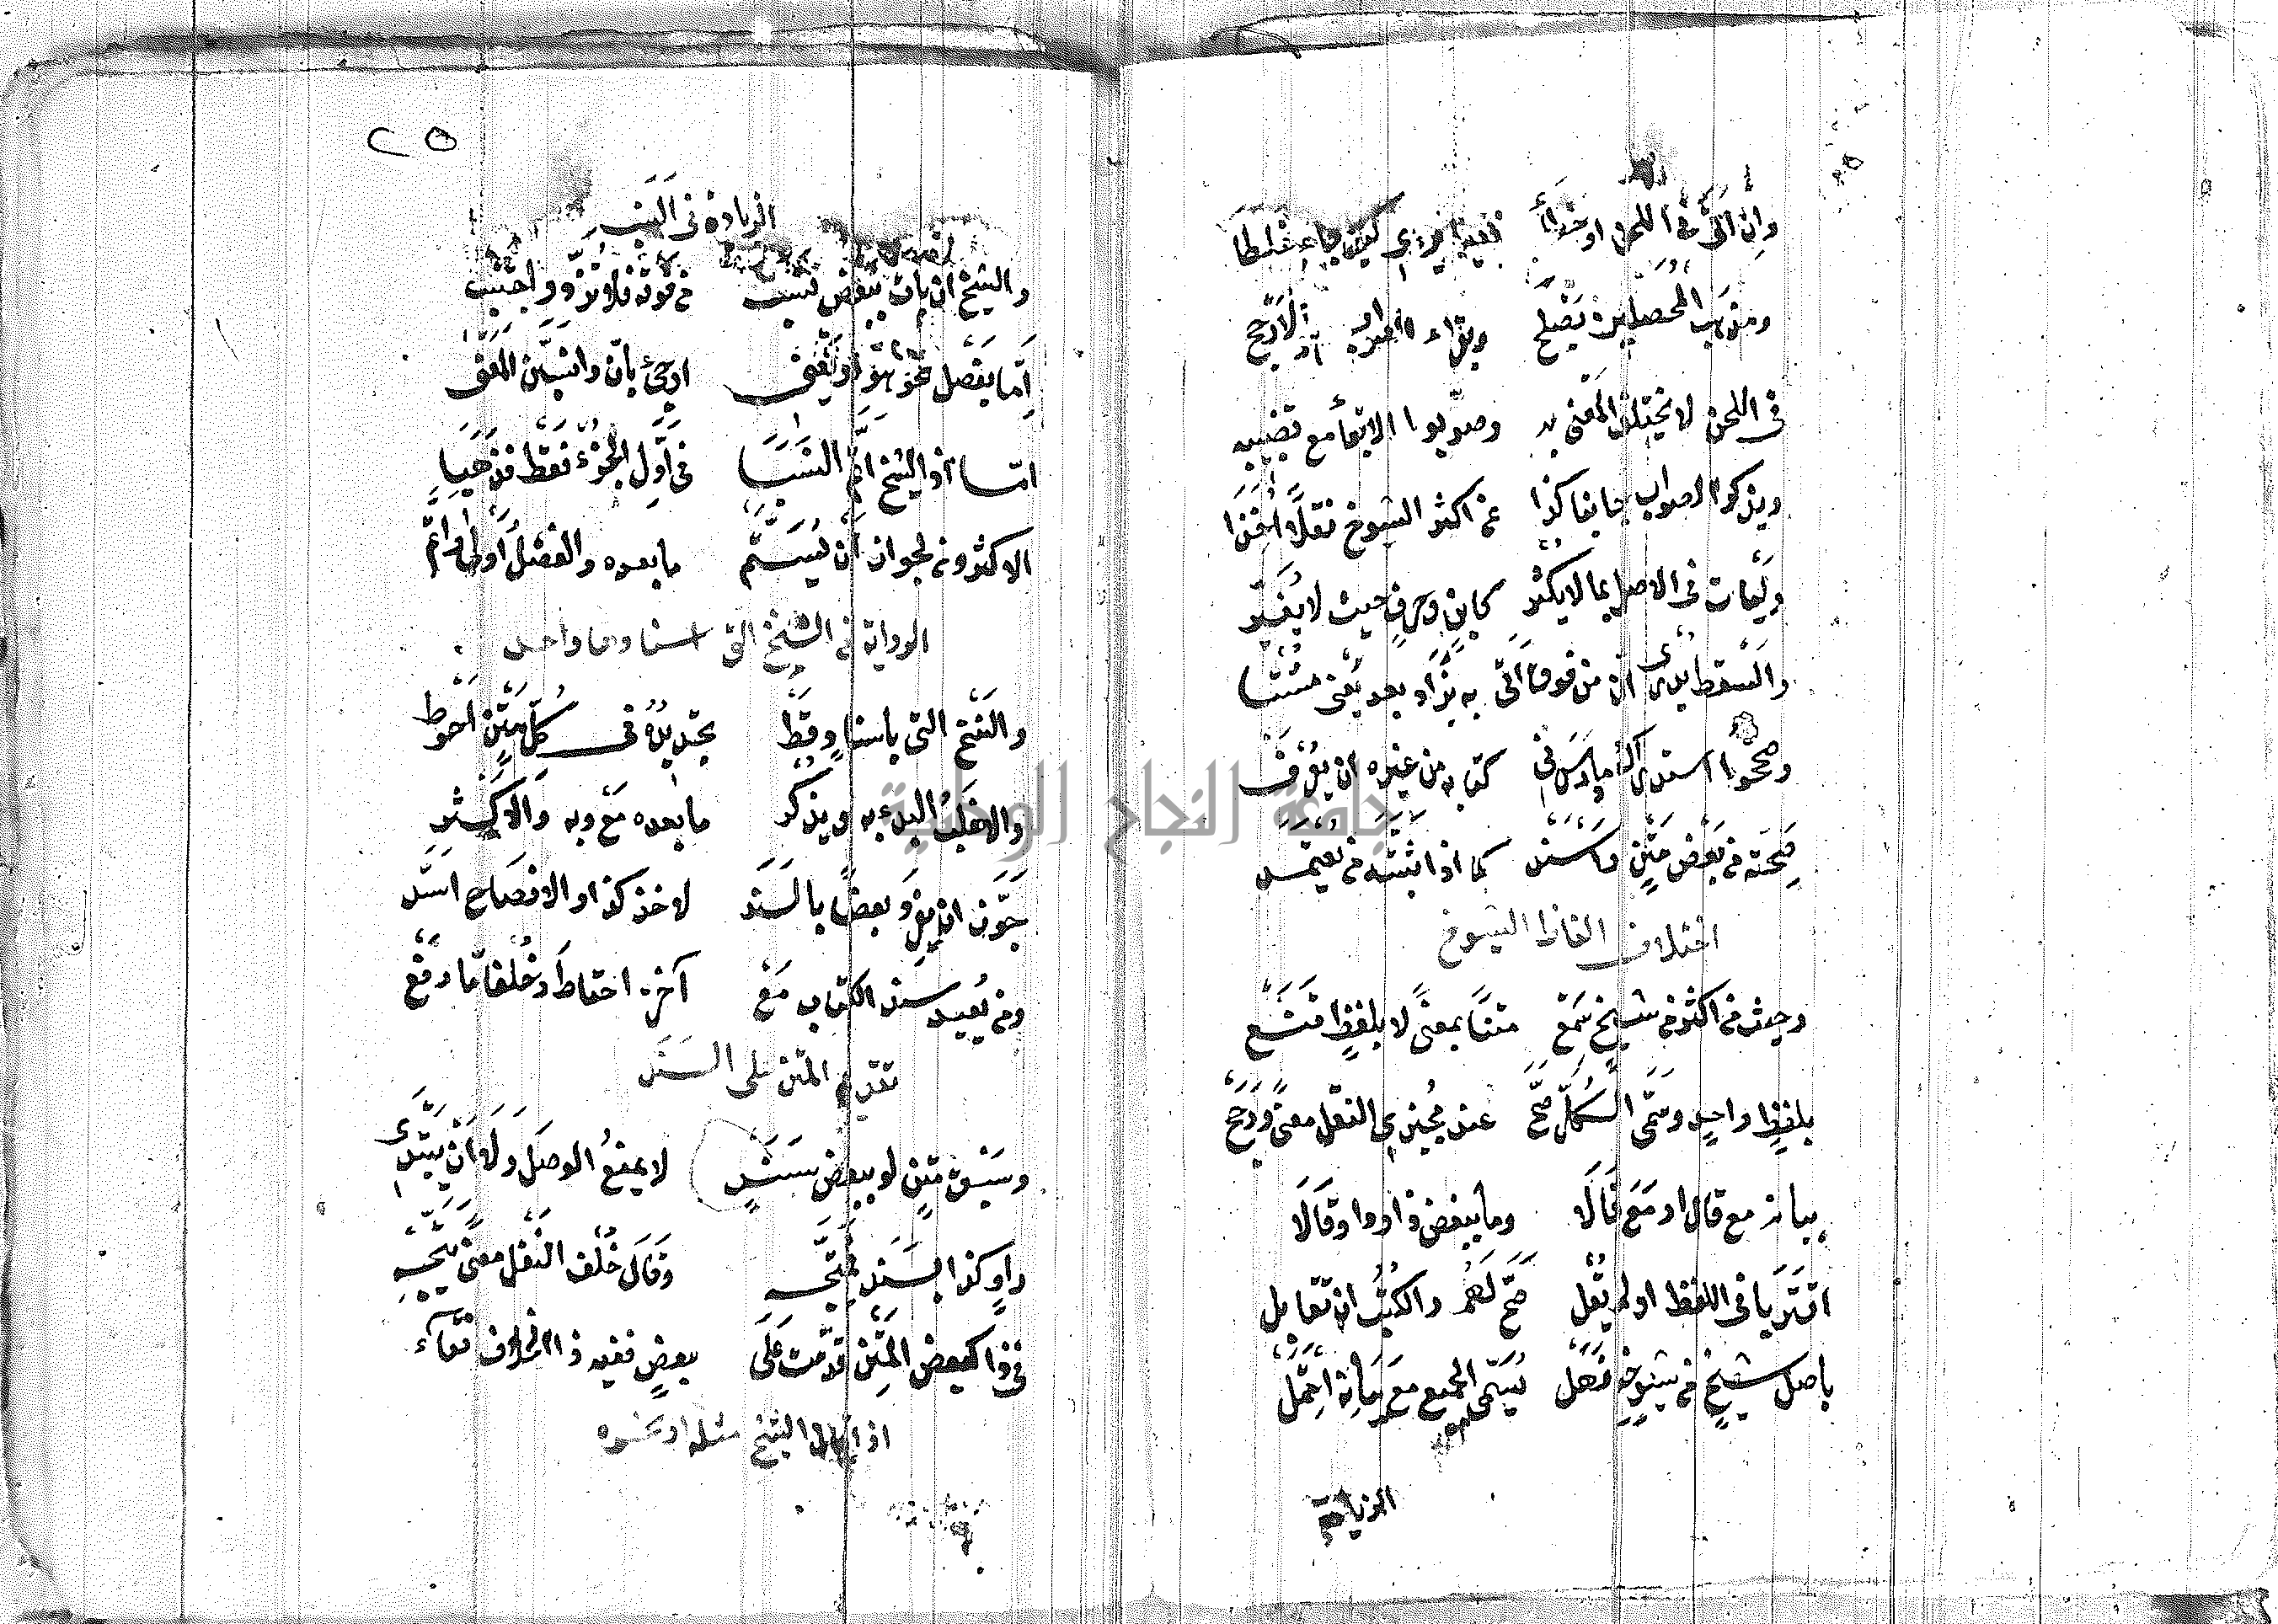 وان اتى في اللحن او خطأ فقيل يروى كيف جاء غلطا
ومذهب المحصلين يصلح ويقرأ الصواب وهو الارجح
في اللحن لا يختل المعنى به وصوبوا الابقاء مع تضبيبه
ويذكر الصواب جانبا كذا عن اكثر الشيوخ نقلا اخذا
وليات في الاصل بما لا يكثر كابن وحرف حيث لا يغير
والسقط يدرى ان من فوق اتى به يزاد بعد يعنى مثبتا
وصححوا استدراك ما درس في كتابه من غيره ان يعرف
صحته من بعض متن وسند كما اذا ثبته من يعتمد
اختلاف الفاظ الشيوخ
وحيث من اكثر من شيخ سمع متنا بمعنى لا بلفظ فقنع
بلفظ واحد وسمى الكل صح عند مجيزي النقل معنى ورجح
بيانه مع قال او مع قالا وما ببعض ذا وذا وقالا
اقتربا في اللفظ او لم يقل صح لهم والكتب ان تقابل
باصل شيخ من شيوخه فهل يسمى الجميع مع بيانه احتمل
الزيادة
٢٥
الزيادة في النسب
والشيخ ان يات ببعض نسب من فوقه فلا تزد واجتنب
اما بفصل نحو هو او يعنى او جئ بان وانسبن المعنى
اما اذا الشيخ اتم النسبا في اول الجزء فقط فذهبا
الاكثرون لجواز ان يتم ما بعده والفصل اولى واتم
الرواية من النسخ التي اسنادها واحد
والنسخ التي باسناد قط تجديده في كل متن احوط
والاغلب البدء به ويذكر ما بعده مع وبه والاكثر
جوز ان يفرد بعضا بالسند لاخذ كذا والافصاح اسد
ومن يعيد سند الكتاب مع آخره احتاط وخلفا ما رفع
تقديم المتن على السند
وسبق متن لو ببعض سند لا يمنع الوصل ولا ان يبتدى
راو كذا بسند فمتجه وقال خلف النقل معنى يتجه
في ذا كبعض المتن قدمت على بعض ففيه ذا الخلاف نقلا
اذا قال الشيخ مثله او نحوه
جامعة النجاح الوطنية